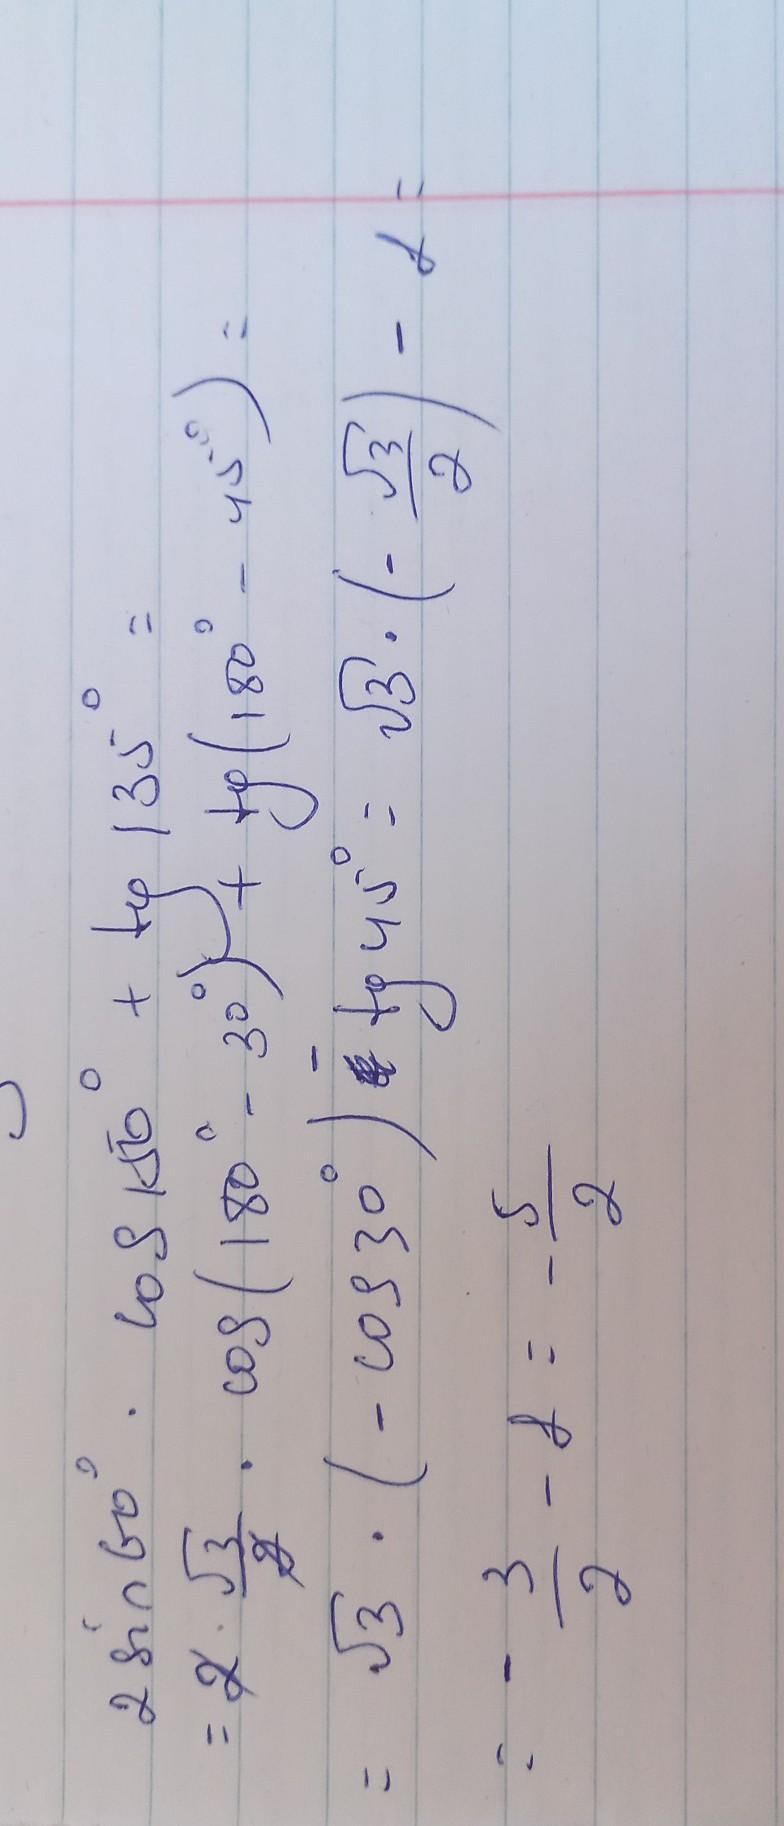 2 sin 60° · cos 150° + tg 135° =
= 2 · √3/2 · cos(180° - 30°) + tg(180° - 45°) =
= √3 · (- cos 30°) - tg 45° = √3 · (- √3/2) - 1 =
= - 3/2 - 1 = - 5/2